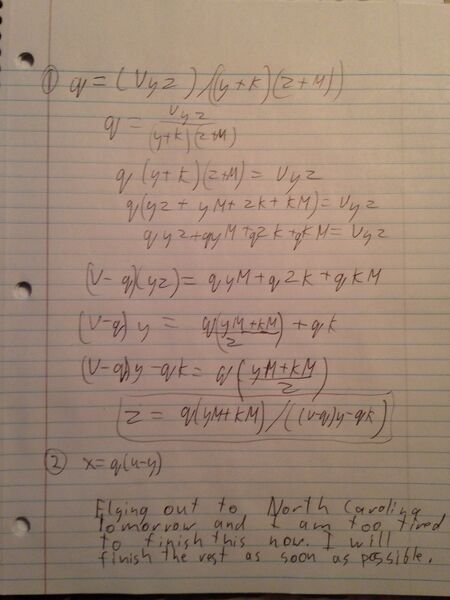 ① q = (Vyz)/((y+K)(z+M))
q = Vyz/(y+K)(z+M)
q (y+K)(z+M) = Vyz
q(yz + yM + zK + KM) = Vyz
qyz + qyM + qzK + qKM = Vyz
(V-q)(yz) = qyM + qzK + qKM
(V-q) y = q(yM+KM)/z + qK
(V-q)y - qK = q (yM+KM/z)
z = q(yM+KM)/((V-q)y-qK)
② x = q(u-y)
Flying out to North Carolina
tomorrow and I am too tired
to finish this now. I will
finish the rest as soon as possible.